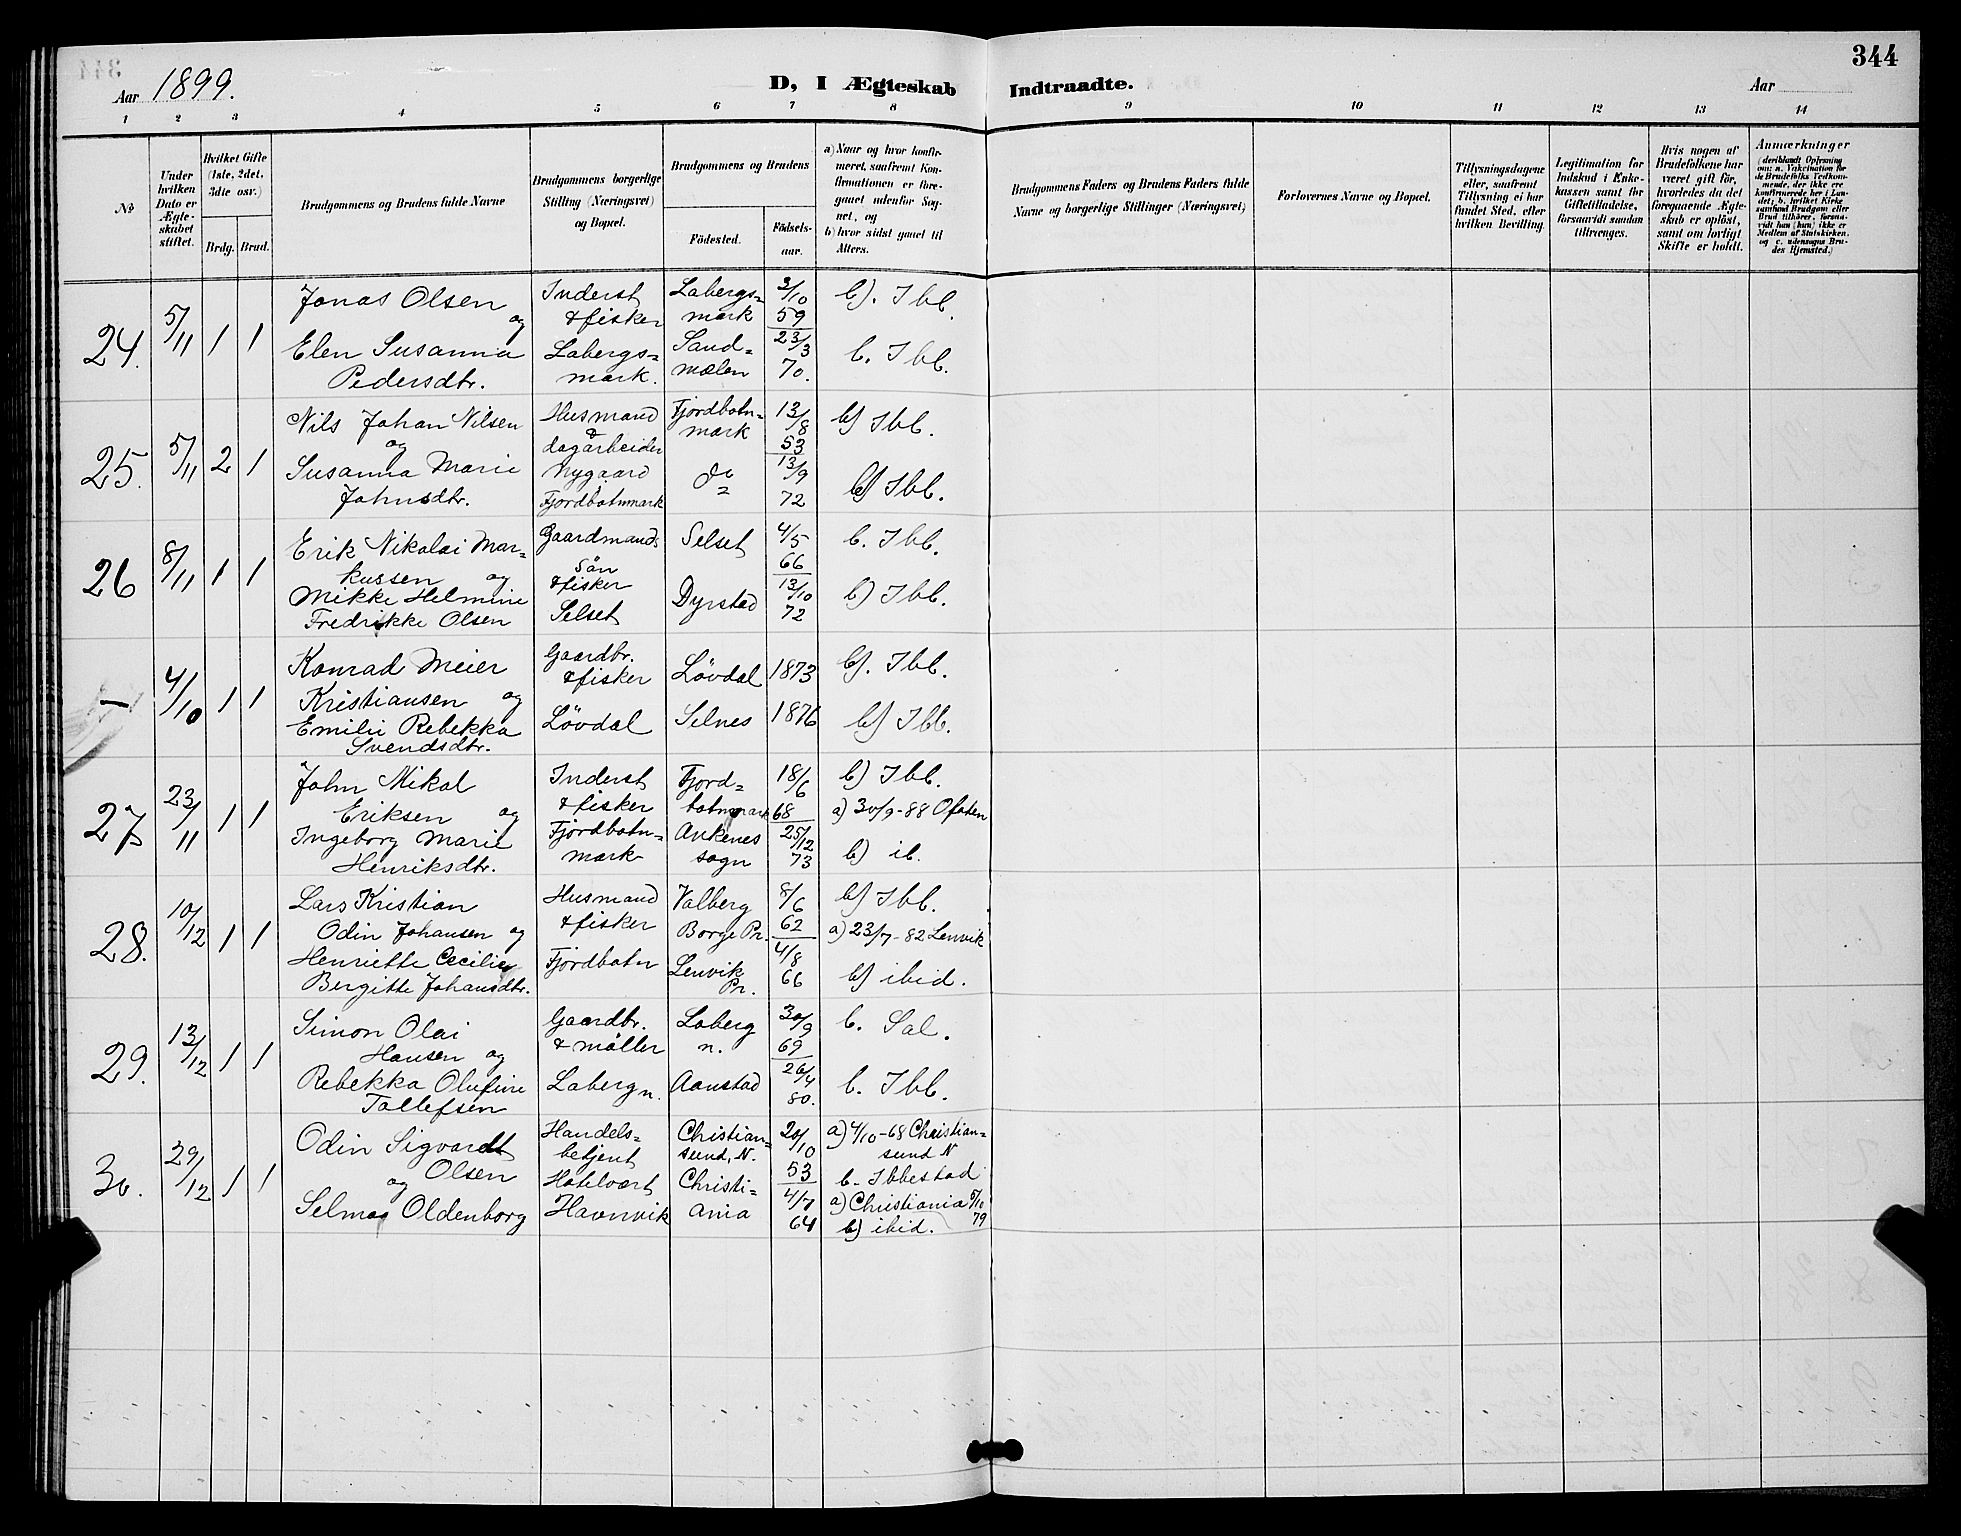 344
Aar 1899.
D, I Ægteskab Indtraadte.
Aar
1 2 3 4 5 6 7 8 9 10 11 12 13 14
№
Under hvilken Dato er Ægteskabet stiftet.
Hvilket Gifte (1ste, 2det, 3die osv.)
Brdg. Brud.
Brudgommens og Brudens fulde Navne
Brudgommens borgerlige Stilling (Næringsvei) og Bopæl.
Brudgommens og Brudens
Födested.
Födselsaar.
a) Naar og hvor konfirmeret, saafremt Konfirmationen er foregaaet udenfor Sognet, og
b) hvor sidst gaaet til Alters.
Brudgommens Faders og Brudens Faders fulde Navne og borgerlige Stillinger (Næringsvei)
Forlovernes Navne og Bopæl.
Tillysningsdagene eller, saafremt Tillysning ei har fundet Sted, efter hvilken Bevilling.
Legitimation for Indskud i Enkekassen samt for Giftetilladelse, forsaavidt saadan tiltrænges.
Hvis nogen af Brudefolkene har været gift før, hvorledes da det foregaaende Ægteskab er opløst, samt om lovligt Skifte er holdt.
Anmærkninger
(deriblandt Oplysning om: a. Vakcination for de Brudefolks Vedkommende, der ikke ere konfirmerede her i Landet; b. hvilket Kirkesamfund Brudgom eller Brud tilhører, forsaavidt han (hun) ikke er Medlem af Statskirken, og c. udensogns Brudes Hjemsted.)
24. 5/11 1 1
Jonas Olsen og
Elen Susanna
Pedersdtr.
Inderst
& fisker
Labergs=
mark.
Labergs=
mark
Sand=
mælen
3/10
59
23/3
70.
b). Ibb.
b. Ibb.
25. 5/11 2 1
Nils Johan Nilsen
og
Susanna Marie
Johnsdtr.
Husmand
&
dagarbeider
Nygaard
Fjordbotnmark
Fjordbotn=
mark
do
13/8
53
13/9
72
b) Ibb.
b) Ibb.
26 8/11 1 1
Erik Nikolai Mar=
kussen og
Mikke Helmine
Fredrikke Olsen
Gaardmands
Sön
& fisker
Selset
Selset
Dyrstad
4/5
66
13/10
72
b. Ibb.
b) Ibb.
— 4/10 1 1
Konrad Meier
Kristiansen og
Emilie Rebekka
Svendsdtr.
Gaardbr.
& fisker
Lövdal
Lövdal
Selnes
1873
1876
b). Ibb.
b) Ibb.
27 23/11 1 1
John Mikal
Eriksen og
Ingeborg Marie
Henriksdtr.
Inderst
& fisker
Fjordbotn=
mark
Fjord=
botnmark
Ankenes
sogn
18/6
68
25/12
73
b) Ibb.
a) 30/9-88 Ofoten
b) ib.
28. 10/12 1 1
Lars Kristian
Odin Johansen og
Henriette Cecilie
Bergitte Johansdtr.
Husmand
& fisker
Fjordbotn
Valberg
Borge Pr.
Lenvik
Pr.
8/6
62
4/8
66
b) Ibb.
a) 23/7-82 Lenvik
b) ibid.
29. 13/12 1 1
Simon Olai
Hansen og
Rebekka Olufine
Tollefsen
Gaardbr.
& möller
Laberg n.
Laberg
n.
Aanstad
30/9
69
26/4
80.
b. Sal.
b. Ibb.
30. 29/12 1 1
Odin Sigvardt
Olsen
og
Selma Oldenborg
Handels=
betjent
Hotelvært
Havnvik
Christian=
sund, N.
Christi=
ania
20/10
53
4/7
64
a) 4/10-68 Christian=
sund N
b. Ibbestad
a) Christiania 5/10 79
b) ibid.